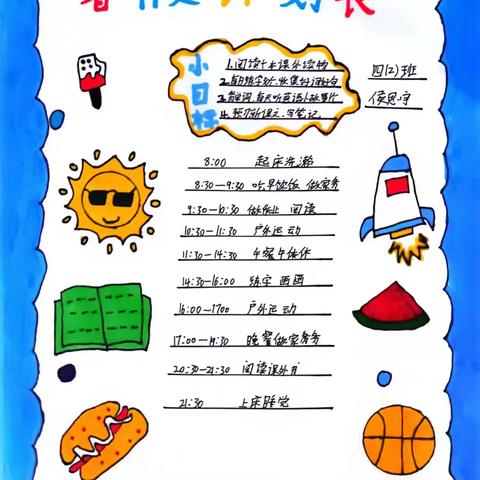 暑假计划表
小目标
1.阅读十本课外读物
2.每日练字,收集好词好句
3.背单词,每天听英语
4.预习新课文,写笔记
四(2)班
8:00 起床洗漱
8:30-9:30 吃早饮饭 做家务
9:30-10:30 做作业 阅读
10:30-11:30 户外运动
11:30-14:30 午餐午休
14:30-16:00 练字 画画
16:00-1700 户外运动
17:00-19:30 晚餐做家务
20:30-21:30 阅读课外书
21:30 上床睡觉